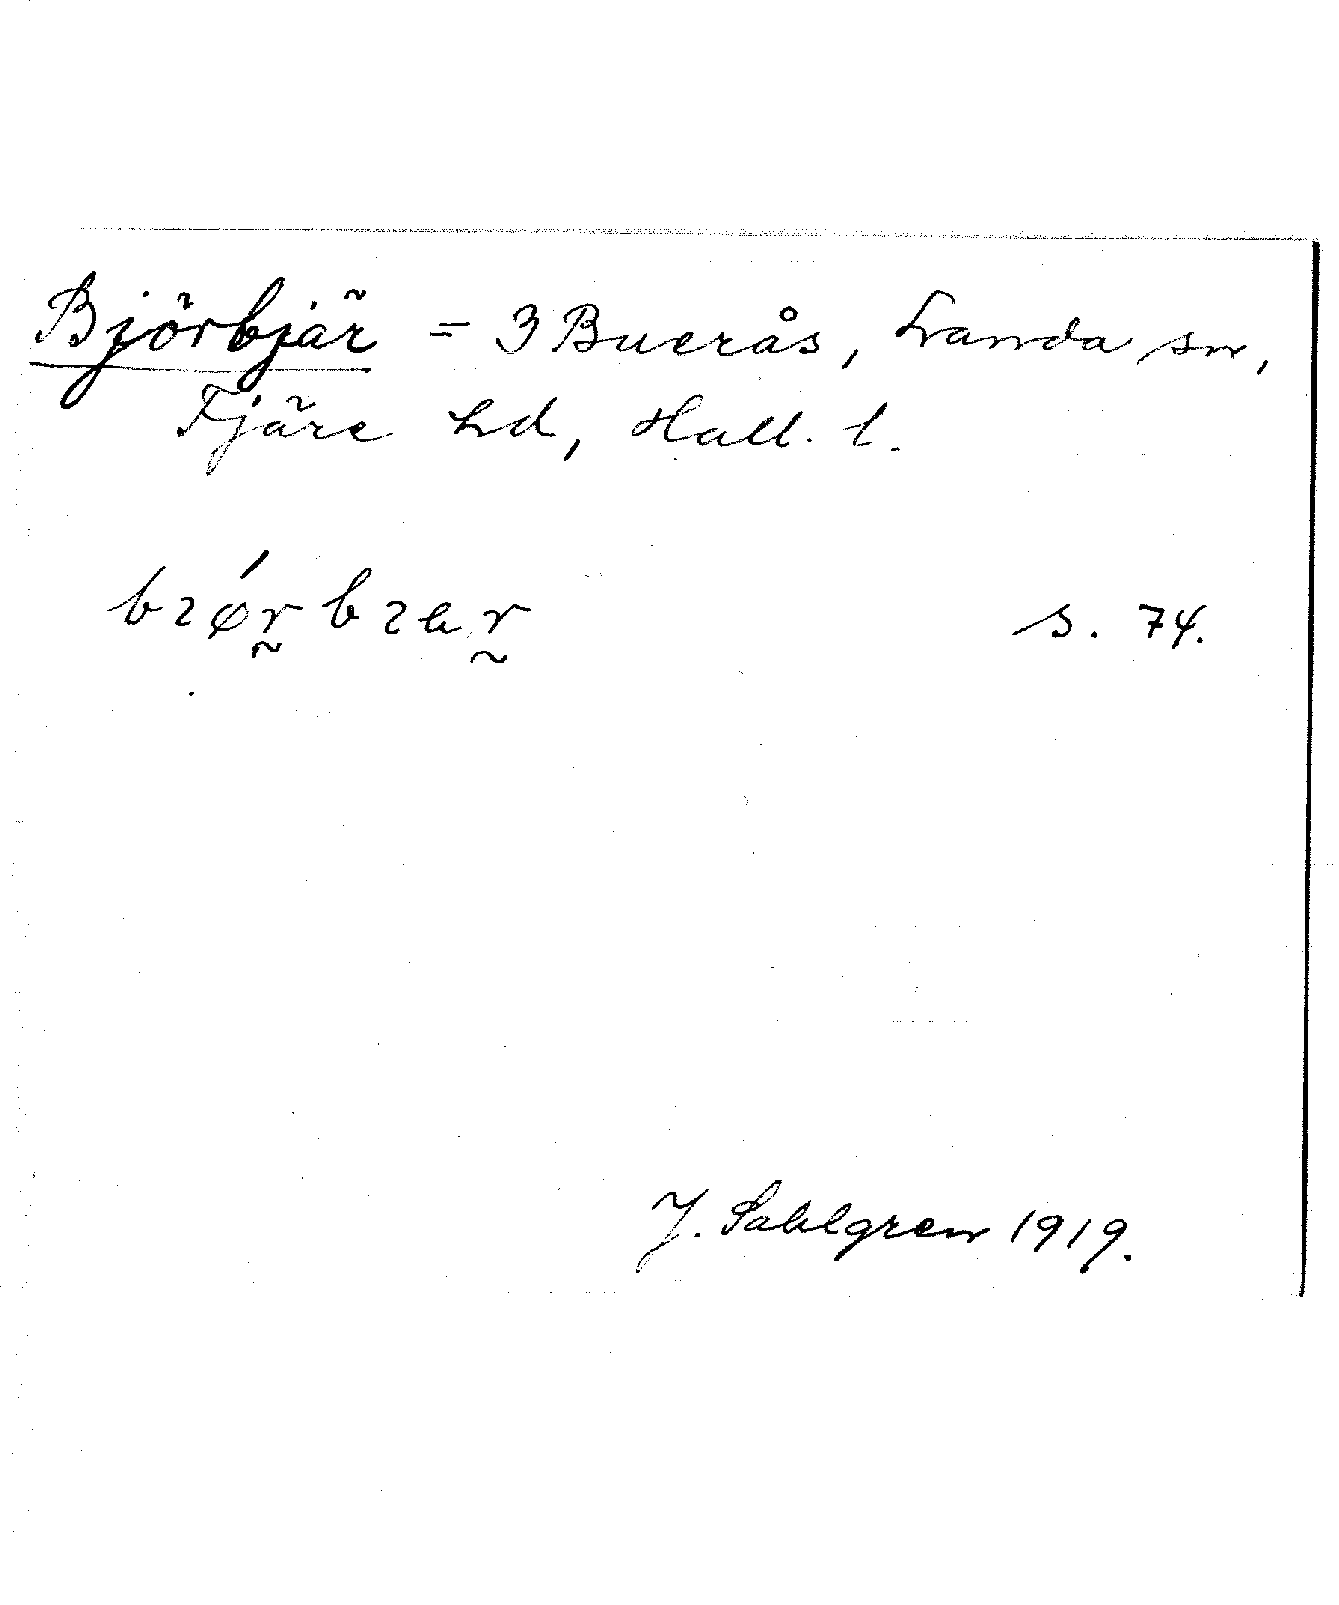 Björbjär = 3 Buerås, Landa sn,
Fjäre hd, Hall. l.
s. 74.
J. Sahlgren 1919.